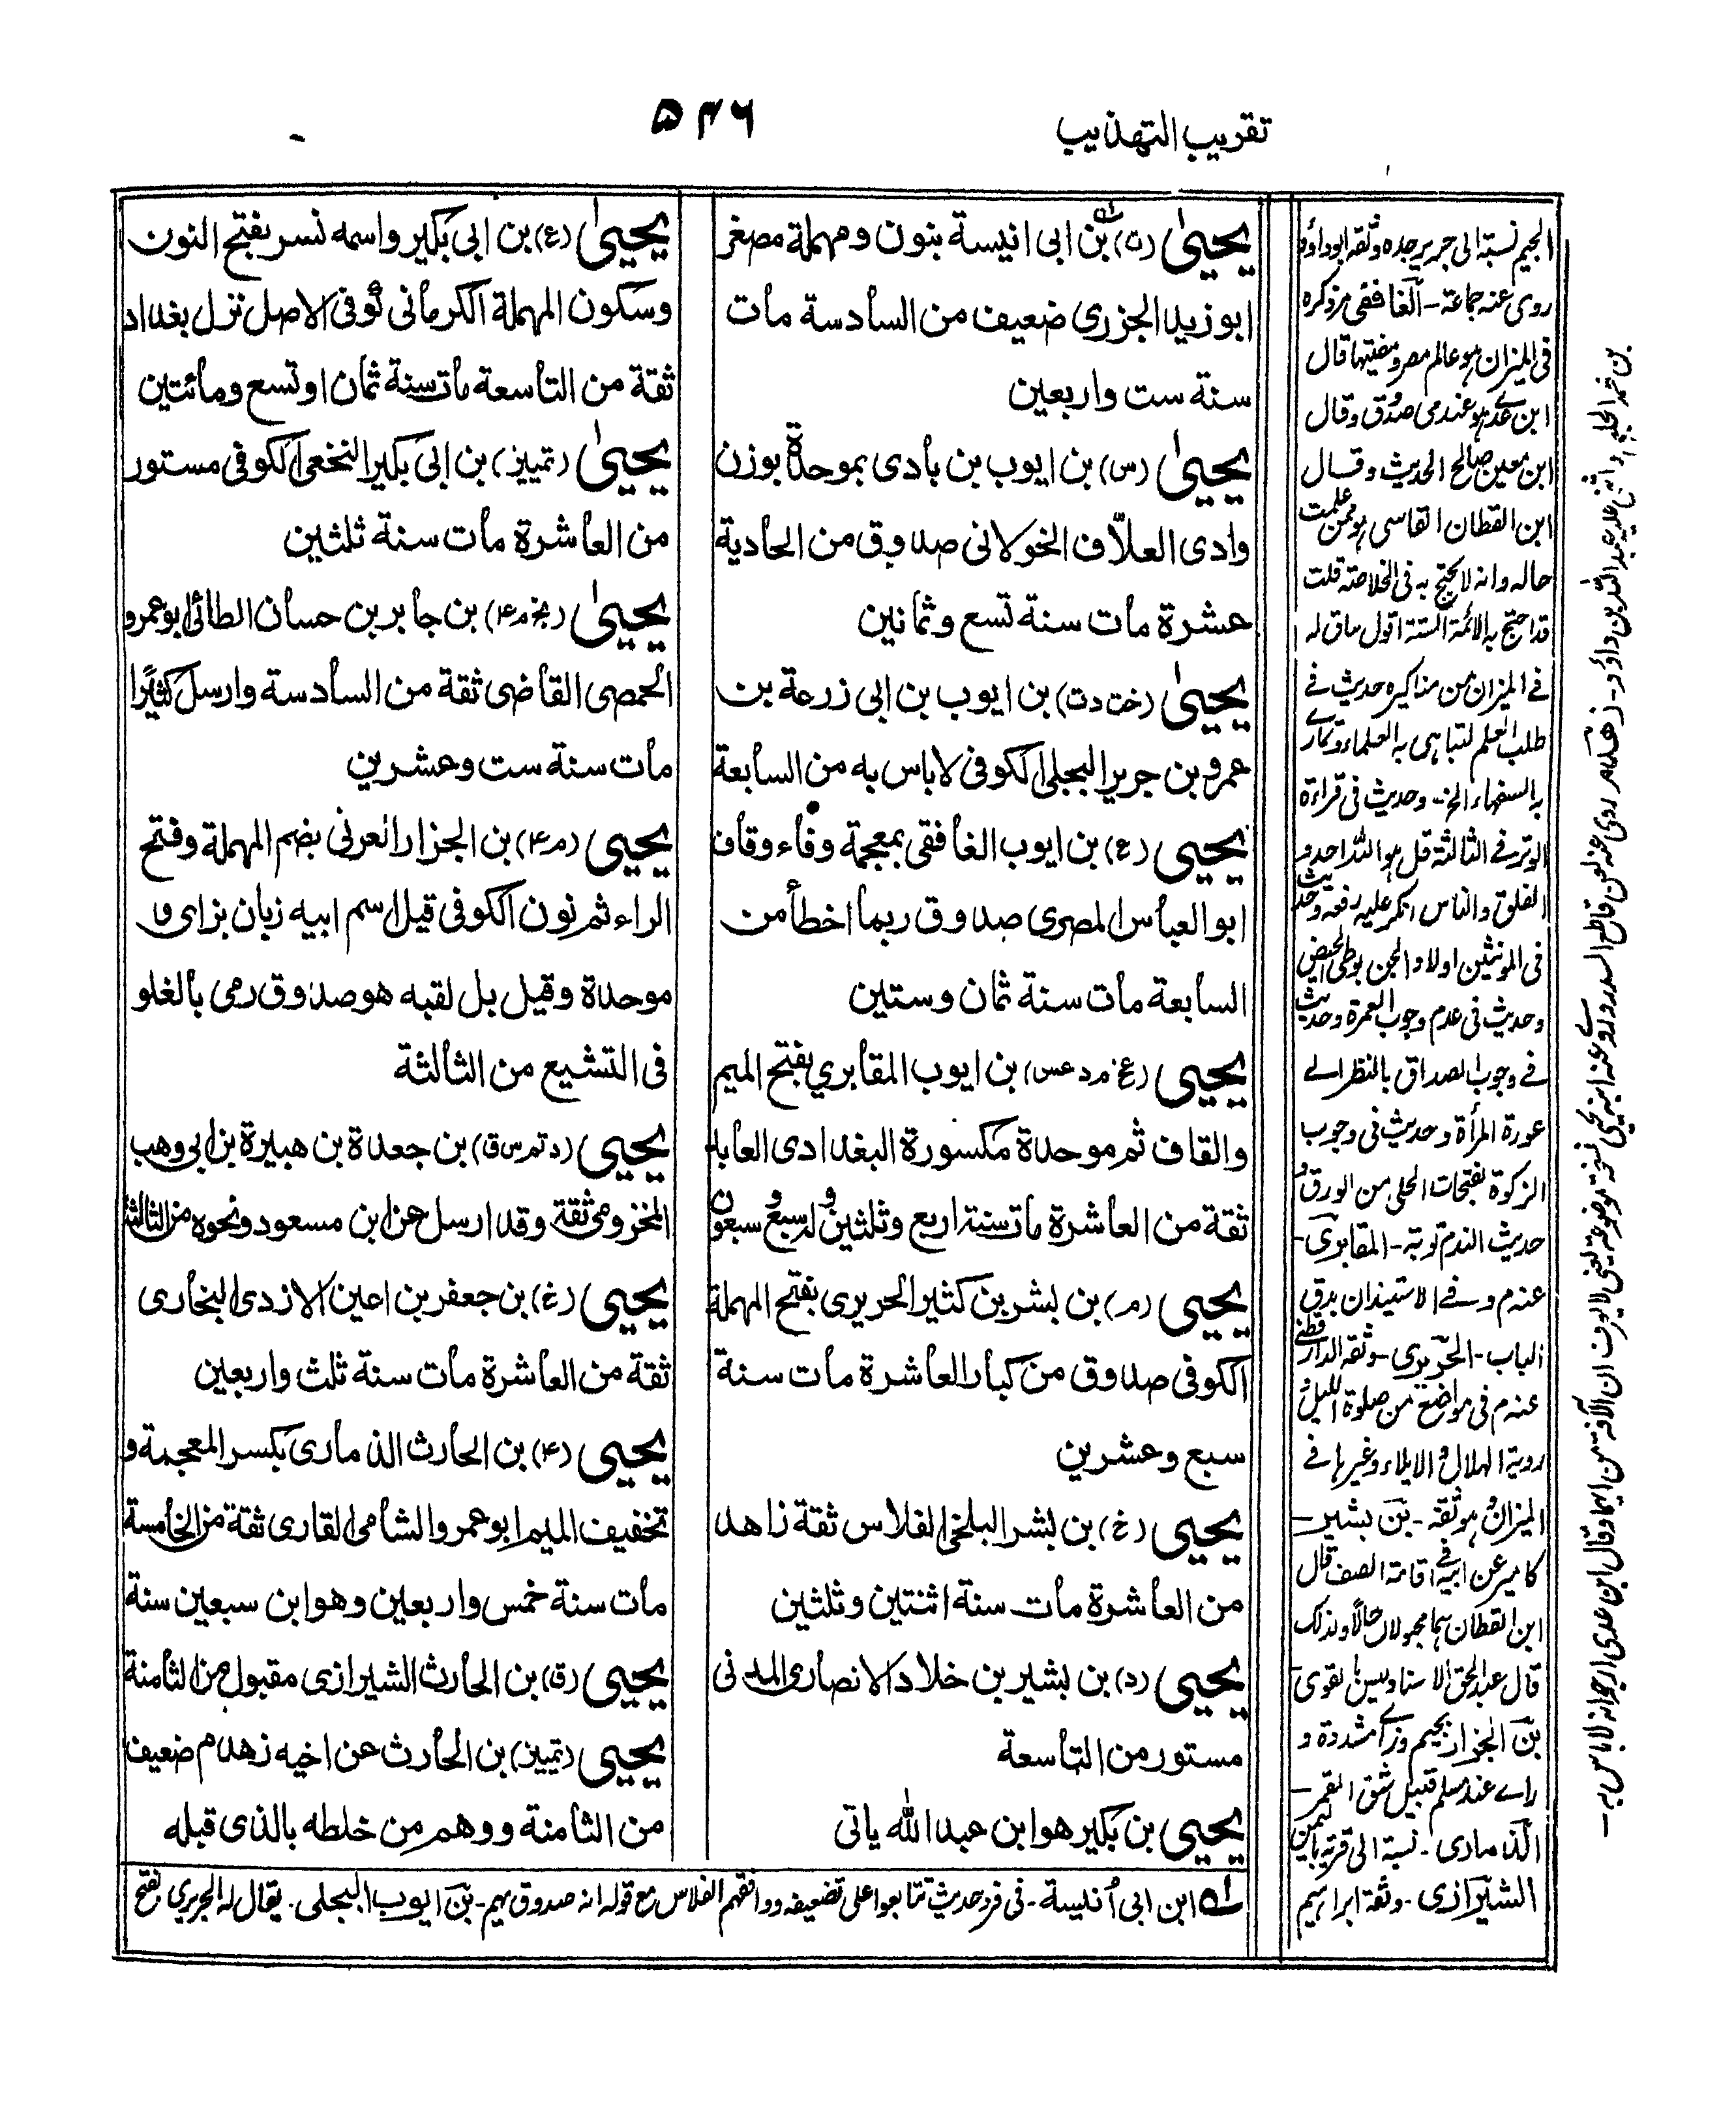 تقريب التهذيب
۵۴۶
يحيىٰ (ت) بن ابى انيسة بنون ومهملة مصغر
ابوزيد الجزري ضعيف من السادسة مات
سنة ست واربعين
يحيىٰ (س) بن ايوب بن بادى بموحدة بوزن
وادى العلّاف الخولانى صدوق من الحادية
عشرة مات سنة تسع وثمانين
يحيىٰ (خت د ت) بن ايوب بن ابى زرعة بن
عمرو بن جرير البجلى الكوفى لاباس به من السابعة
يحيى (ع) بن ايوب الغافقى بمعجمة وفاء وقاف
ابو العباس المصرى صدوق ربما اخطأ من
السابعة مات سنة ثمان وستين
يحيى (عخ م د عس) بن ايوب المقابري بفتح الميم
والقاف ثم موحدة مكسورة البغدادى العابد
ثقة من العاشرة مات سنة اربع وثلثين وله سبع وسبعون
يحيى (م) بن بشر بن كثير الحريرى بفتح المهملة
الكوفى صدوق من كبار العاشرة مات سنة
سبع وعشرين
يحيى (خ) بن بشر البلخى الفلاس ثقة زاهد
من العاشرة مات سنة اثنتين وثلثين
يحيى (د) بن بشير بن خلاد الانصارى المدنى
مستور من التاسعة
يحيى بن بكير هو ابن عبد الله ياتى
يحيىٰ (ع) بن ابى بكير واسمه نسر بفتح النون
وسكون المهملة الكرمانى كوفى الاصل نزل بغداد
ثقة من التاسعة مات سنة ثمان او تسع ومائتين
يحيىٰ (تمييز) بن ابى بكير النخعى الكوفى مستور
من العاشرة مات سنة ثلثين
يحيىٰ (بخ م ۴) بن جابر بن حسان الطائى ابو عمرو
الحمصى القاضى ثقة من السادسة وارسل كثيرًا
مات سنة ست وعشرين
يحيى (م ۴) بن الجزار العرنى بضم المهملة وفتح
الراء ثم نون الكوفى قيل اسم ابيه زبان بزاى و
موحدة وقيل بل لقبه هو صدوق رمى بالغلو
فى التشيع من الثالثة
يحيى (د تم س ق) بن جعدة بن هبيرة بن ابى وهب
المخزومى ثقة وقد ارسل عن ابن مسعود ونحوه من الثالثة
يحيى (خ) بن جعفر بن اعين الازدى البخارى
ثقة من العاشرة مات سنة ثلث واربعين
يحيى (۴) بن الحارث الذمارى بكسر المعجمة و
تخفيف الميم ابو عمرو الشامى القارى ثقة من الخامسة
مات سنة خمس واربعين وهو ابن سبعين سنة
يحيى (ق) بن الحارث الشيرازى مقبول من الثامنة
يحيى (تمييز) بن الحارث عن اخيه زهدم ضعيف
من الثامنة ووهم من خلطه بالذى قبله
ابن ابى أنيسة - فى فرد حديث تتابعوا على تضعيفه ووافقهم الفلاس مع قوله انه صدوق يهم - بن ايوب البجلى. يقال له الجريري بفتح
الجيم نسبة الى جرير جده وثقه ابو داؤد
روى عنه جماعة - الغافقى ذكره
فى الميزان هو عالم مصر ومفتيها قال
ابن عدى هو عندى صدوق وقال
ابن معين صالح الحديث وقال
ابن القطان الفاسى هو ممن علمت
حاله وانه لا يحتج به فى الخلاصة قلت
قد احتج به الائمة الستة اقول ساق له
فى الميزان من مناكيره حديث فى
طلب العلم لتباهى به العلماء وتمارى
به السفهاء الخ - وحديث فى قراءة
الوتر فى الثالثة قل هو الله احد و
الفلق والناس انكر عليه رفعه وحديث
فى المونثين اولاد الجن بوطى الحيض
وحديث فى عدم وجوب العمرة وحديث
فى وجوب الصداق بالنظر الى
عورة المرأة وحديث فى وجوب
الزكوة بفتحات الحلى من الورق و
حديث الندم توبة - المقابرى -
عنه م و فى الاستيذان بدق
الباب - الحريرى - وثقه الدارقطنى
عنه م فى مواضع من صلوة الليل و
روية الهلال والايلاء وغيرها فى
الميزان هو ثقة - بن بشير -
عن ابيه فى اقامة الصف قال
ابن القطان هما مجهولان حالا ولذلك
قال عبد الحق الاسناد ليس بقوى
بن الجزار بجيم وزاى مشددة و
راء عند مسلم قبيل شق القمر -
الذمارى - نسبة الى قرية باليمن
الشيرازى - وثقه ابراهيم
واثنى عليه عبد الله بن داؤد - زهدم روى عنه لعن قاطع السدر وروى عنه ابنه يحيى نسخة موضوعة يعنى لا يعرف ان الآفة من ايهما وقال ابن عدى ارجو انه لا باس به -